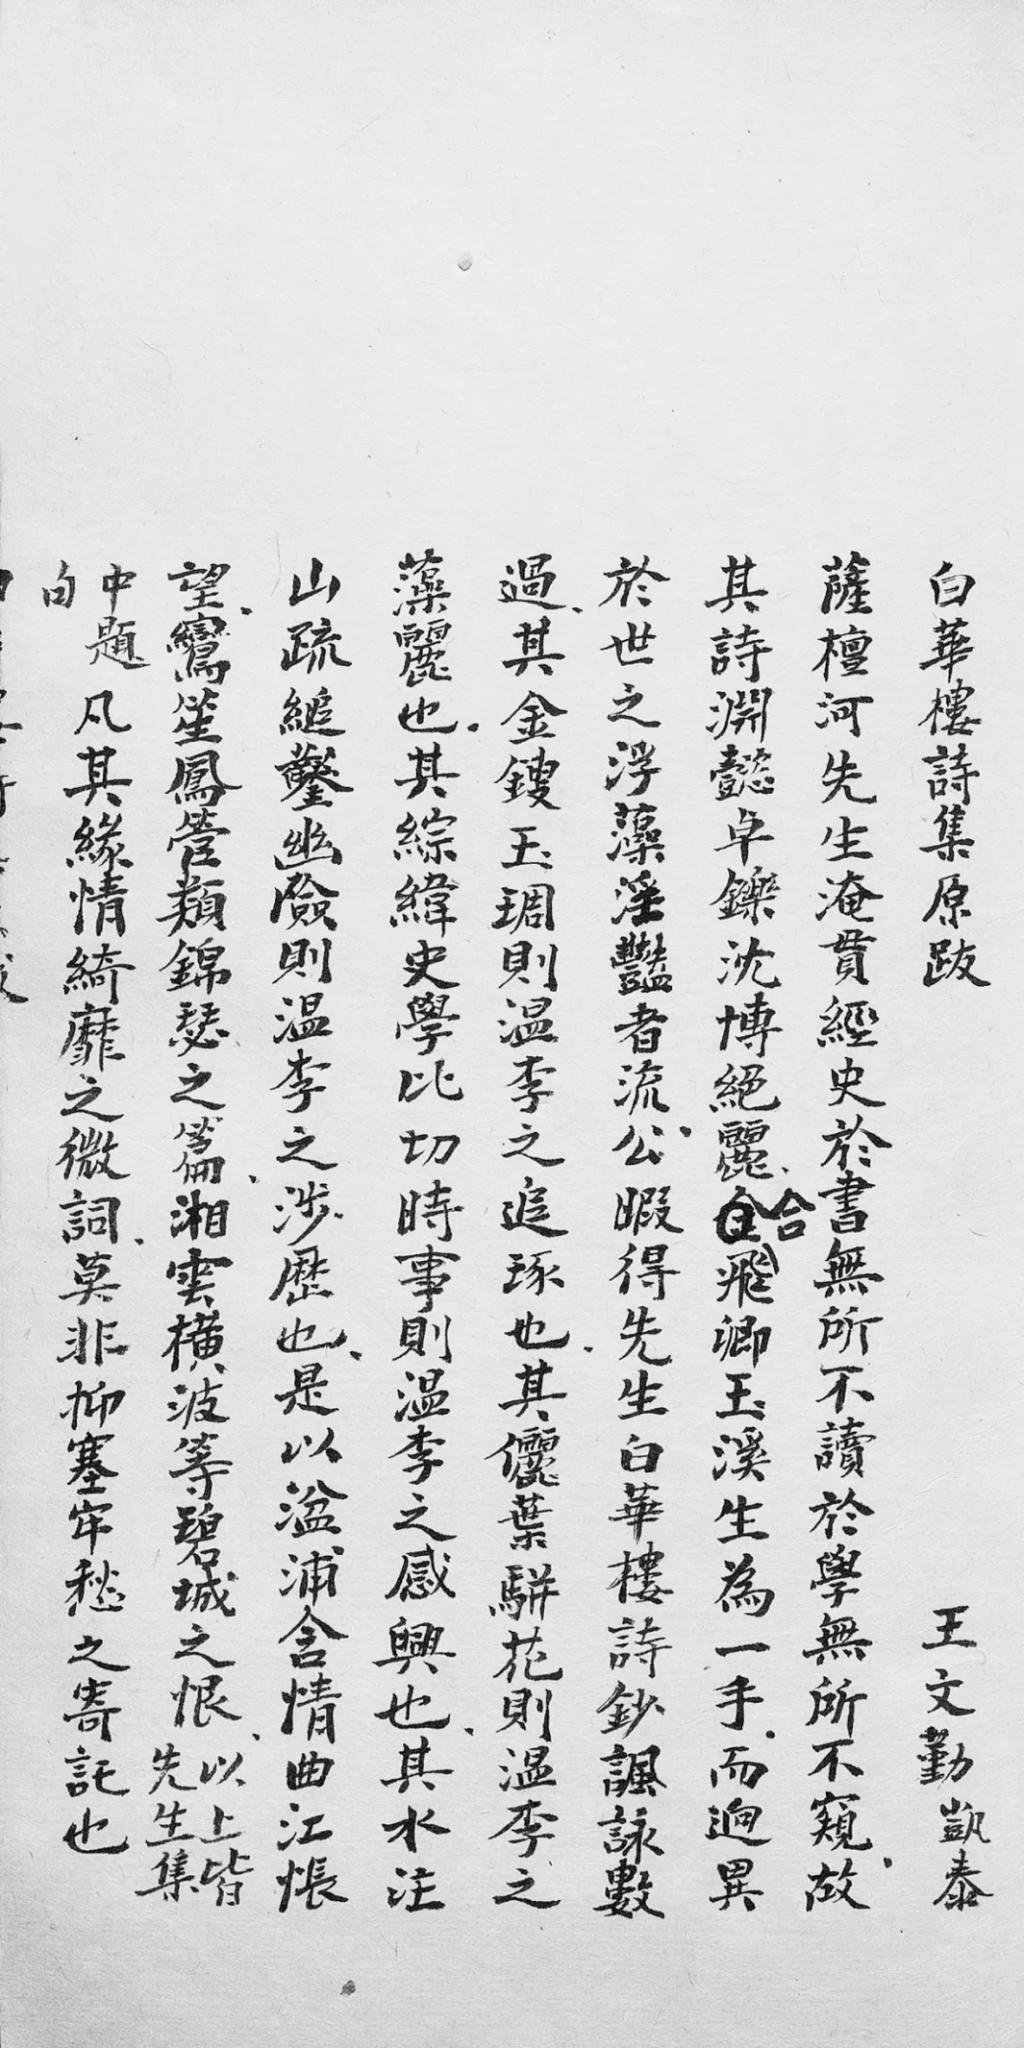 白華樓詩集原跋 王文勤凱泰
薩檀河先生淹貫經史於書無所不讀於學無所不窺故
其詩淵懿卓鑠沈博絕麗合飛卿玉溪生為一手而迥異
於世之浮藻淫豔者流公暇得先生白華樓詩鈔諷詠數
過其金鏤玉琱則温李之追琢也其儷葉駢花則温李之
藻麗也其綜緯史學比切時事則温李之感興也其水注
山疏縋鑿幽險則温李之涉歷也是以湓浦含情曲江悵
望鸞笙鳳管類錦瑟之篇湘雲橫波等碧城之恨以上皆先生集
中題句凡其緣情綺靡之微詞莫非抑塞牢愁之寄託也